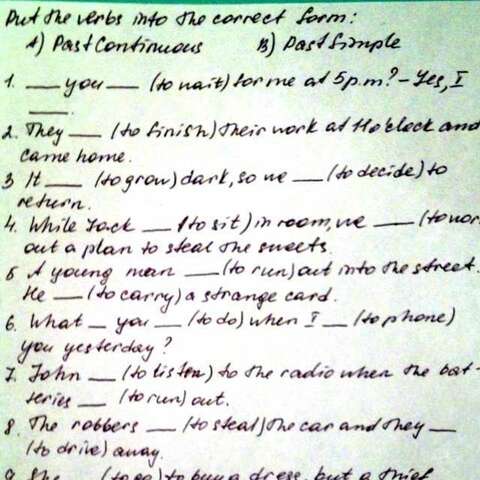 Put the verbs into the correct form:
A) Past Continuous B) Past Simple
1. __ you __ (to wait) for me at 5 p.m? – Yes, I
__.
2. They __ (to finish) their work at 11 o'clock and
came home.
3 It __ (to grow) dark, so we __ (to decide) to
return.
4. While Jack __ (to sit) in room, we __ (to wor
out a plan to steal the sweets.
5 A young man __ (to run) out into the street.
He __ (to carry) a strange card.
6. What _ you _ (to do) when I _ (to phone)
you yesterday?
7. John __ (to listen) to the radio when the bat-
teries __ (to run) out.
8. The robbers __ (to steal) the car and they __
(to drive) away.
9. She __ (to go) to buy a dress, but a thief